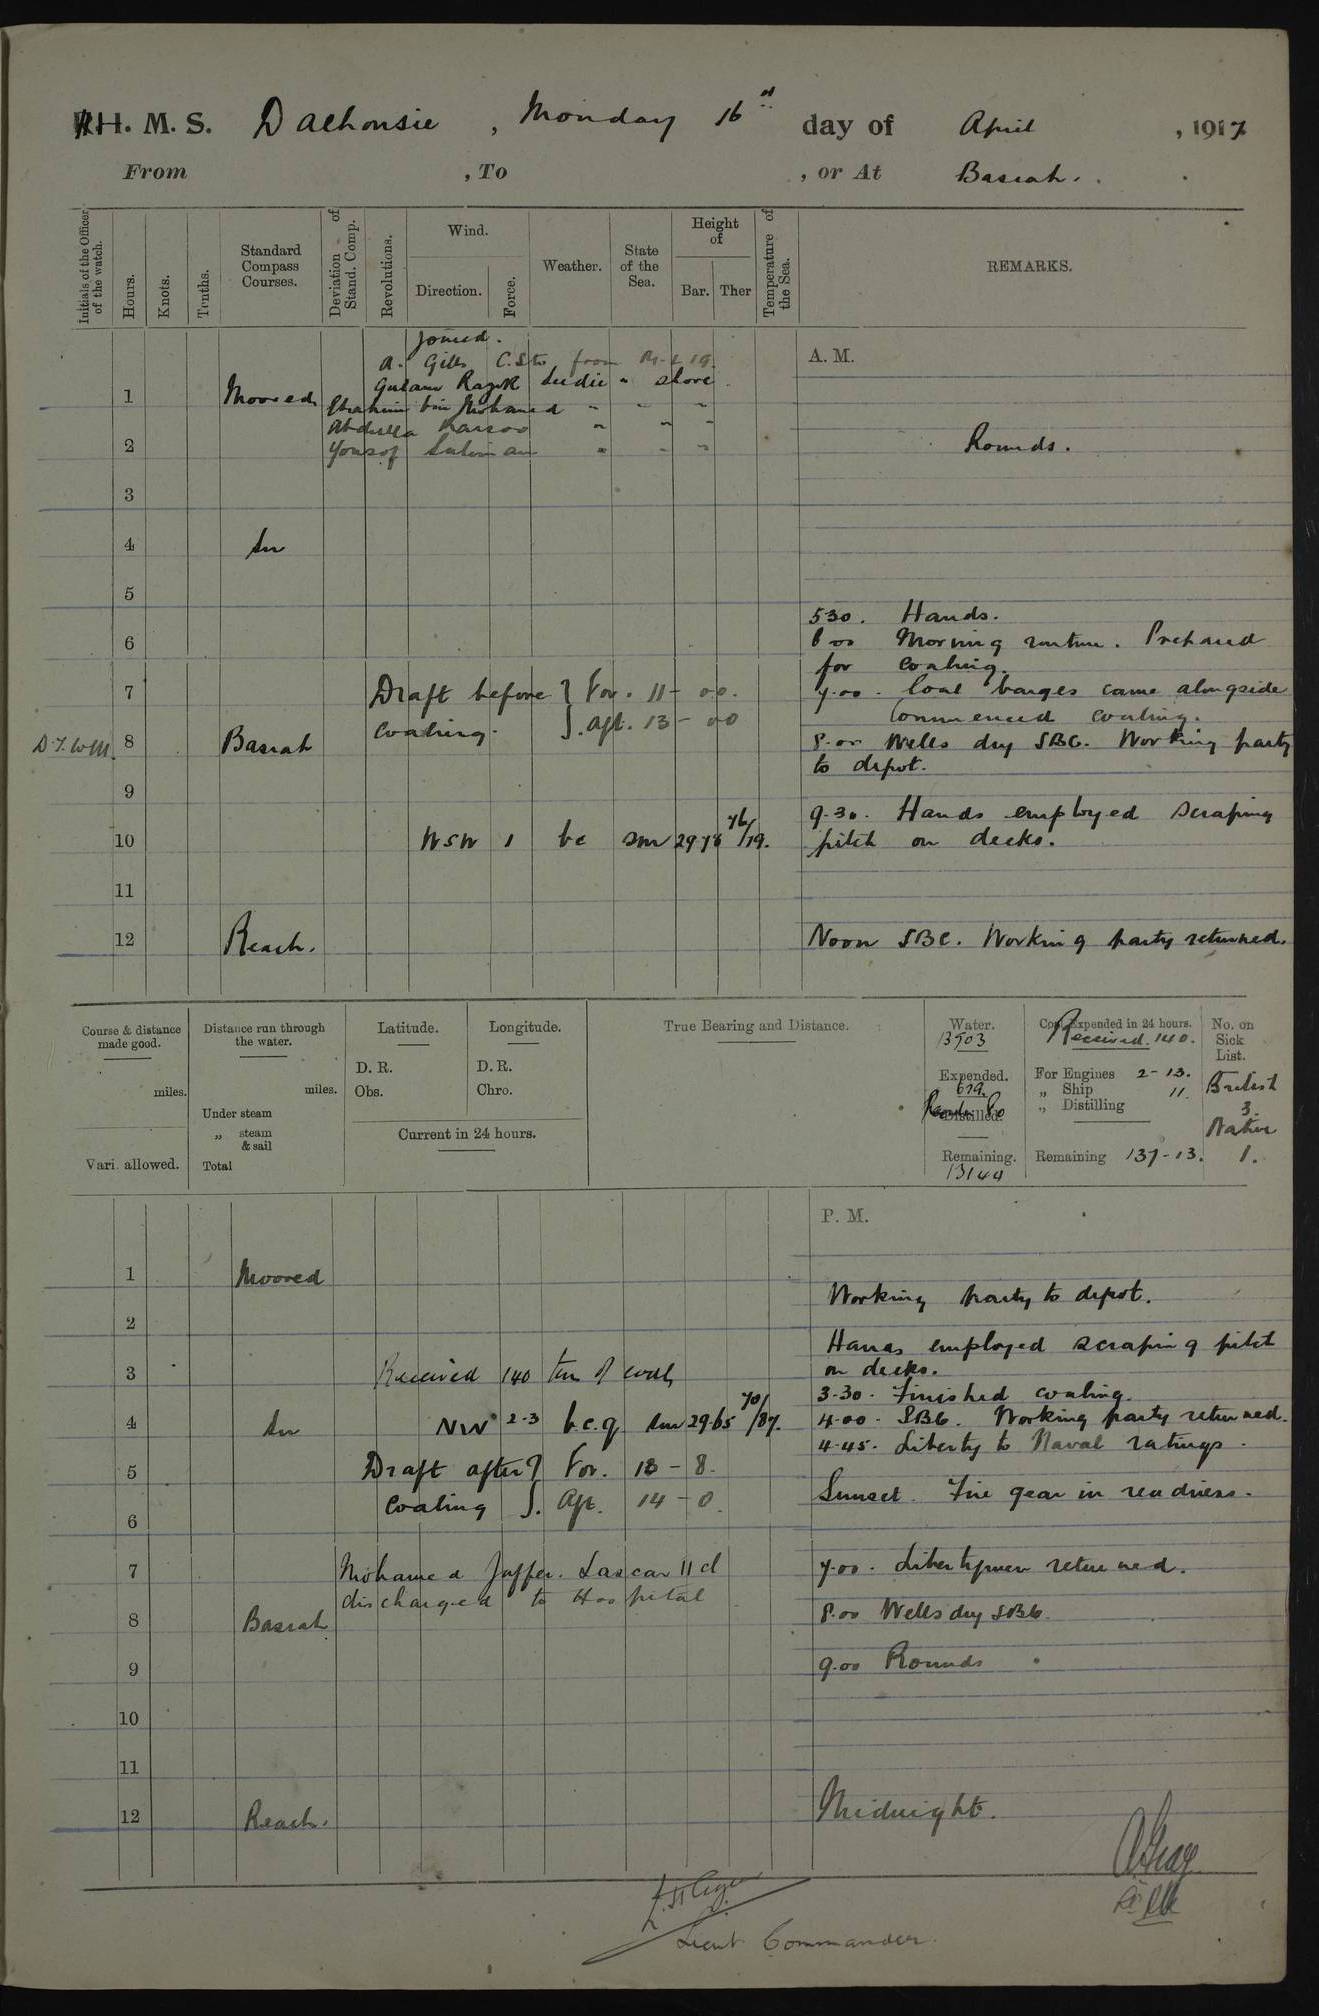 H. M. S. Dalhousie, Monday 16th day of April, 1917
From , To , or At Basrah.
Initials of the Officer of the watch.
Hours.
Knots.
Tenths.
Standard Compass Courses.
Deviation of Stand. Comp.
Revolutions.
Wind.
Direction.
Force.
Weather.
State of the Sea.
Height of
Bar.
Ther
Temperature of the Sea.
REMARKS.
Joined.
A. M.
A. Gills C. Sto from
Gulam Razak Seedie " shore
1 Moored Ibrahim bin Mohamed " " "
Abdulla " " "
2 Yousof Suliman " " " Rounds.
3
4 In
5
5.30. Hands.
6 6.00 Morning routine. Prepared
for coaling.
7 Draft before } For. 11 - 00. 7.00. Coal barges came alongside
coaling. } Aft. 13 - 00 Commenced coaling.
8 Basrah 8.00 Wells dry SBC. Working party
to depot.
9
9.30. Hands employed scraping
10 WSW 1 bc sm 29.78 76/79. pitch on decks.
11
12 Reach. Noon SBC. Working party returned.
Course & distance made good.
miles.
Vari. allowed.
Distance run through the water.
miles.
Under steam
„ steam & sail
Total
Latitude.
D. R.
Obs.
Longitude.
D. R.
Chro.
Current in 24 hours.
True Bearing and Distance.
Water.
13503
Expended.
Distilled.
Remaining.
Coal Expended in 24 hours.
Received. 140.
For Engines 2 - 13.
„ Ship 11.
„ Distilling
Remaining 137 - 13.
No. on Sick List.
British
3.
Native
1.
P. M.
1 Moored
Working party to depot.
2
Hands employed scraping pitch
3 Received 140 tons of coal on decks.
3.30. Finished coaling.
4 In NW 2-3 b.c.q sm 29.65 70/87. 4.00. SBC. Working party returned.
4.45. Liberty to Naval ratings.
5 Draft after } For. 13 - 8.
coaling } Aft. 14 - 0. Sunset. Fire gear in readiness.
6
7 Mohamed Jaffer. Lascar II cl 7.00. Libertymen returned.
discharged to Hospital
8 Basrah 8.00 Wells dry SBC
9 9.00 Rounds
10
11
12 Reach. Midnight.
A. Gray
Lieut Commander.